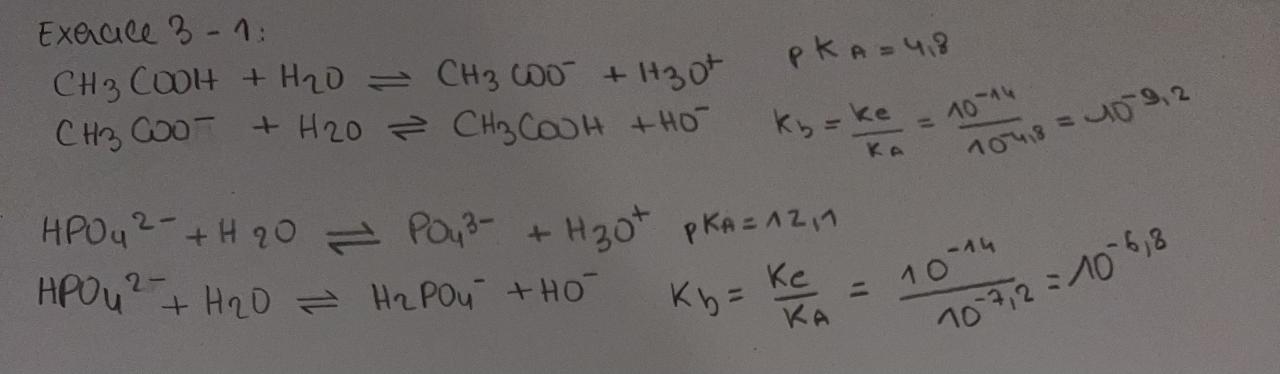 Exercice 3 - 1:
CH3COOH + H2O ⇌ CH3COO⁻ + H3O⁺ pKA = 4,8
CH3COO⁻ + H2O ⇌ CH3COOH + HO⁻ Kb = Ke/KA = 10⁻¹⁴/10⁻⁴,⁸ = 10⁻⁹,²
HPO4²⁻ + H2O ⇌ PO4³⁻ + H3O⁺ pKA = 12,1
HPO4²⁻ + H2O ⇌ H2PO4⁻ + HO⁻ Kb = Ke/KA = 10⁻¹⁴/10⁻⁷,² = 10⁻⁶,⁸